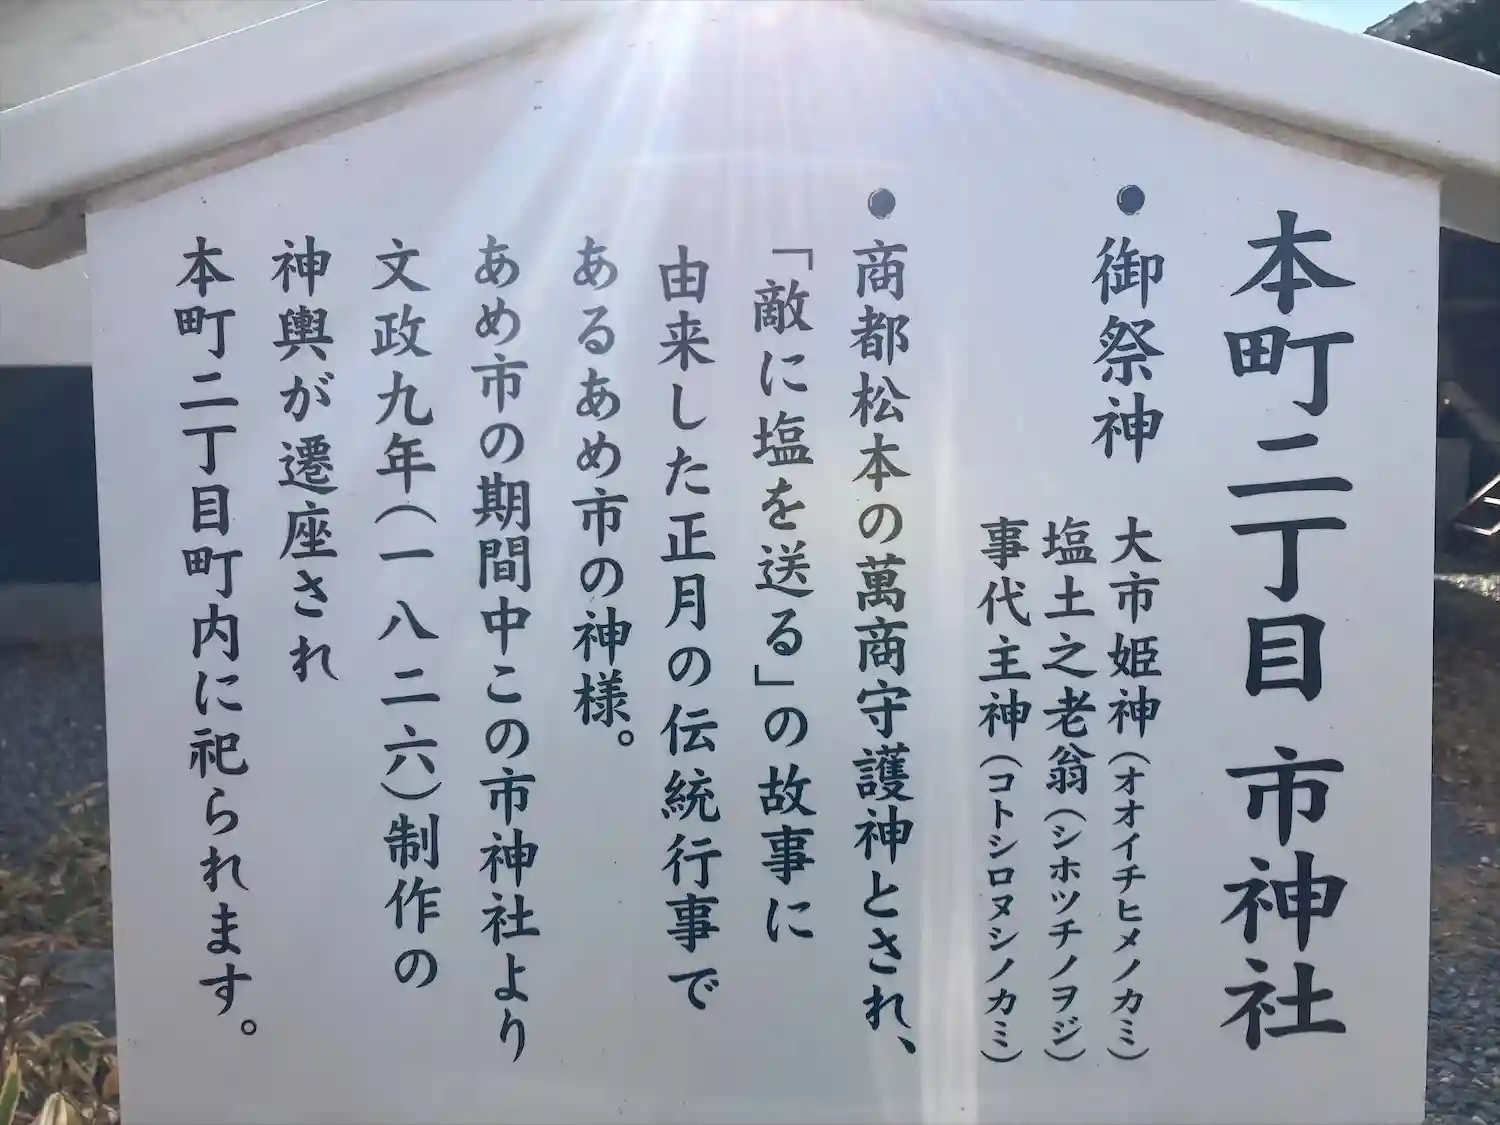 本町二丁目 市神社
●御祭神
大市姫神(オオイチヒメノカミ)
塩土之老翁(シホツチノヲジ)
事代主神(コトシロヌシノカミ)
●商都松本の萬商守護神とされ、
「敵に塩を送る」の故事に
由来した正月の伝統行事で
あるあめ市の神様。
あめ市の期間中この市神社より
文政九年(一八二六)制作の
神輿が遷座され
本町二丁目町内に祀られます。